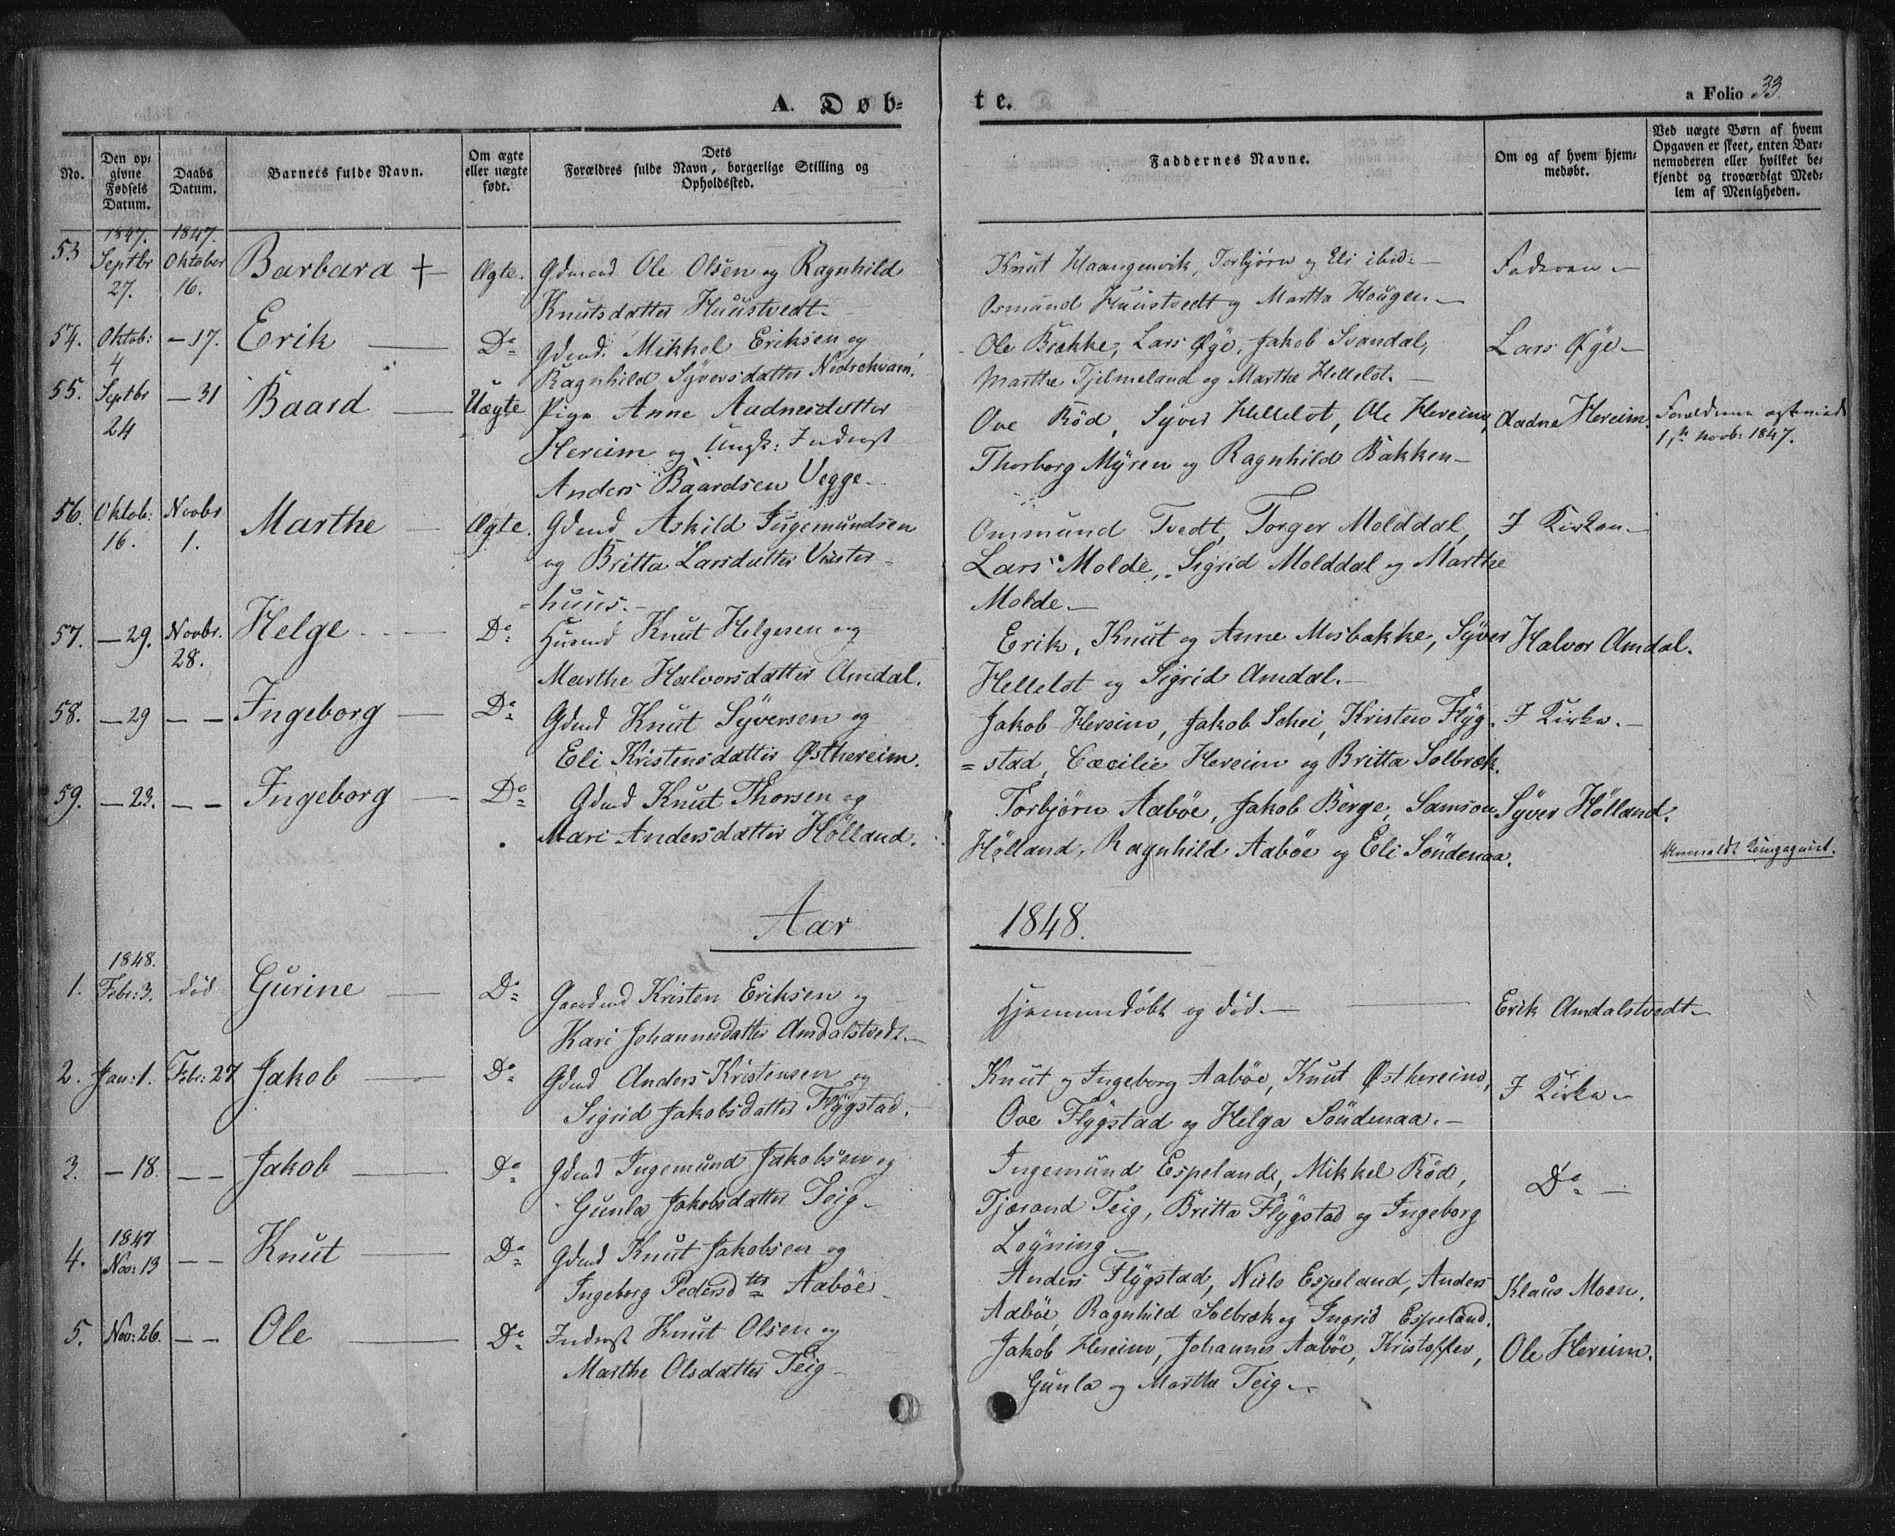 A. Døb-
te.
a Folio 33.
No.
Den opgivne Fødsels Datum.
Daabs Datum.
Barnets fulde Navn.
Om ægte eller uægte født.
Dets Forældres fulde Navn, borgerlige Stilling og Opholdssted.
Faddernes Navne.
Om og af hvem hjemmedøbt.
Ved uægte Børn af hvem Opgaven er skeet, enten Barnemoderen eller hvilket bekjendt og troværdigt Medlem af Menigheden.
53 1847. Septbr 27. 1847. Oktober 16. Barbara + Ægte. Gdmand Ole Olsen og Ragnhild
Knutsdatter Huustvedt.
Knut Haangenvik, Torbjørn og Eli ibid:
Osmund Huustvedt og Martha Hougen
Faderen
54. Oktob: 4 – 17. Erik Do Gdmd. Mikkel Eriksen og
Ragnhild Syversdatter Nedrekvam.
Ole Bakke, Lars Øye, Jakob Svandal,
Marthe Tjelmeland og Marthe Helleløt.
Lars Øye
55. Septbr 24 – 31 Baard Uægte Pige Anne Aadnesdatter
Hereim og Ungk: Inderst
Anders Baardsen Vegge
Ove Rød, Syver Helleløt, Ole Hereim,
Thorborg Myren og Ragnhild Bakken
Aadne Hereim.
1ste Novb: 1847.
56. Oktob: 16. Novbr 1. Marthe Ægte. Gdmd Askild Ingemundsen
og Britta Larsdatter Vester-
-huus.
Ommund Tvedt, Torger Molddal,
Lars Molde, Sigrid Molddal og Marthe
Molde
I Kirken
57. – 29. Novbr. 28. Helge Do Husmd Knut Helgesen og
Marthe Halvorsdatter Amdal.
Erik, Knut og Anne Mosbakke, Syver
Helleløt og Sigrid Amdal.
Halvor Amdal.
58. – 29 – – Ingeborg Do Gdmd Knut Syversen og
Eli Kristensdatter Østhereim.
Jakob Hereim, Jakob Schei, Kristen Flyg-
=stad, Cæcilie Hereim og Britta Solbræk.
I Kirke.
59. – 23. – – Ingeborg Do Gdmd Knut Thorsen og
Mari Andersdatter Hølland.
Torbjørn Aabøe, Jakob Berge, Samson
Hølland, Ragnhild Aabøe og Eli Søndenaa.
Syver Hølland.
Aar 1848.
1. 1848. Febr: 3. død Gurine Do Gaardmd Kristen Eriksen og
Kari Johannesdatter Amdalstvedt.
Hjemmedøbt og død.
Erik Amdalstvedt
2. Jan: 1. Febr: 27 Jakob Do Gdmd Anders Kristensen og
Sigrid Jakobsdatter Flygstad.
Knut og Ingeborg Aabøe, Knut Østhereim,
Ove Flygstad og Helga Søndenaa.
I Kirke
3. – 18. – – Jakob Do Gdmd Ingemund Jakobsen og
Gunla Jakobsdatter Teig
Ingemund Espeland, Mikkel Rød,
Tjærand Teig, Britta Flygstad og Ingeborg
Løyning
Do
4. 1847 Nov: 13 – – Knut Do Gdmd Knut Jakobsen og
Ingeborg Pedersdtr Aabøe
Anders Flygstad, Niels Espeland, Anders
Aabøe, Ragnhild Solbræk og Ingrid Espeland.
Klaus Moen.
5. Nov: 26. – – Ole Do Inderst Knut Olsen og
Marthe Olsdatter Teig
Jakob Hereim, Johannes Aabøe, Kristoffer,
Gunla og Marthe Teig
Ole Hereim.